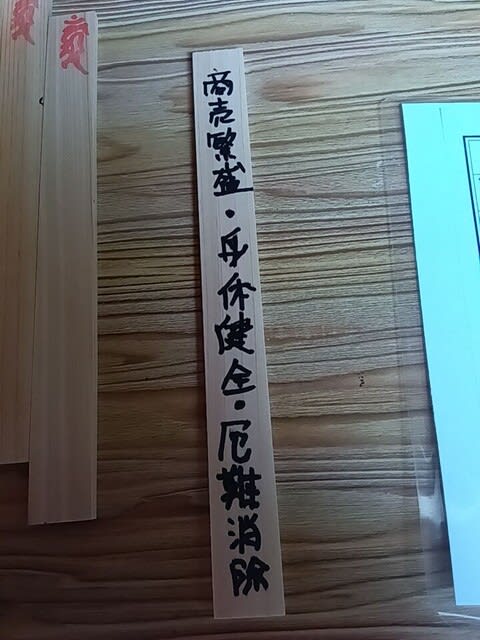 商売繁盛・身体健全・厄難消除